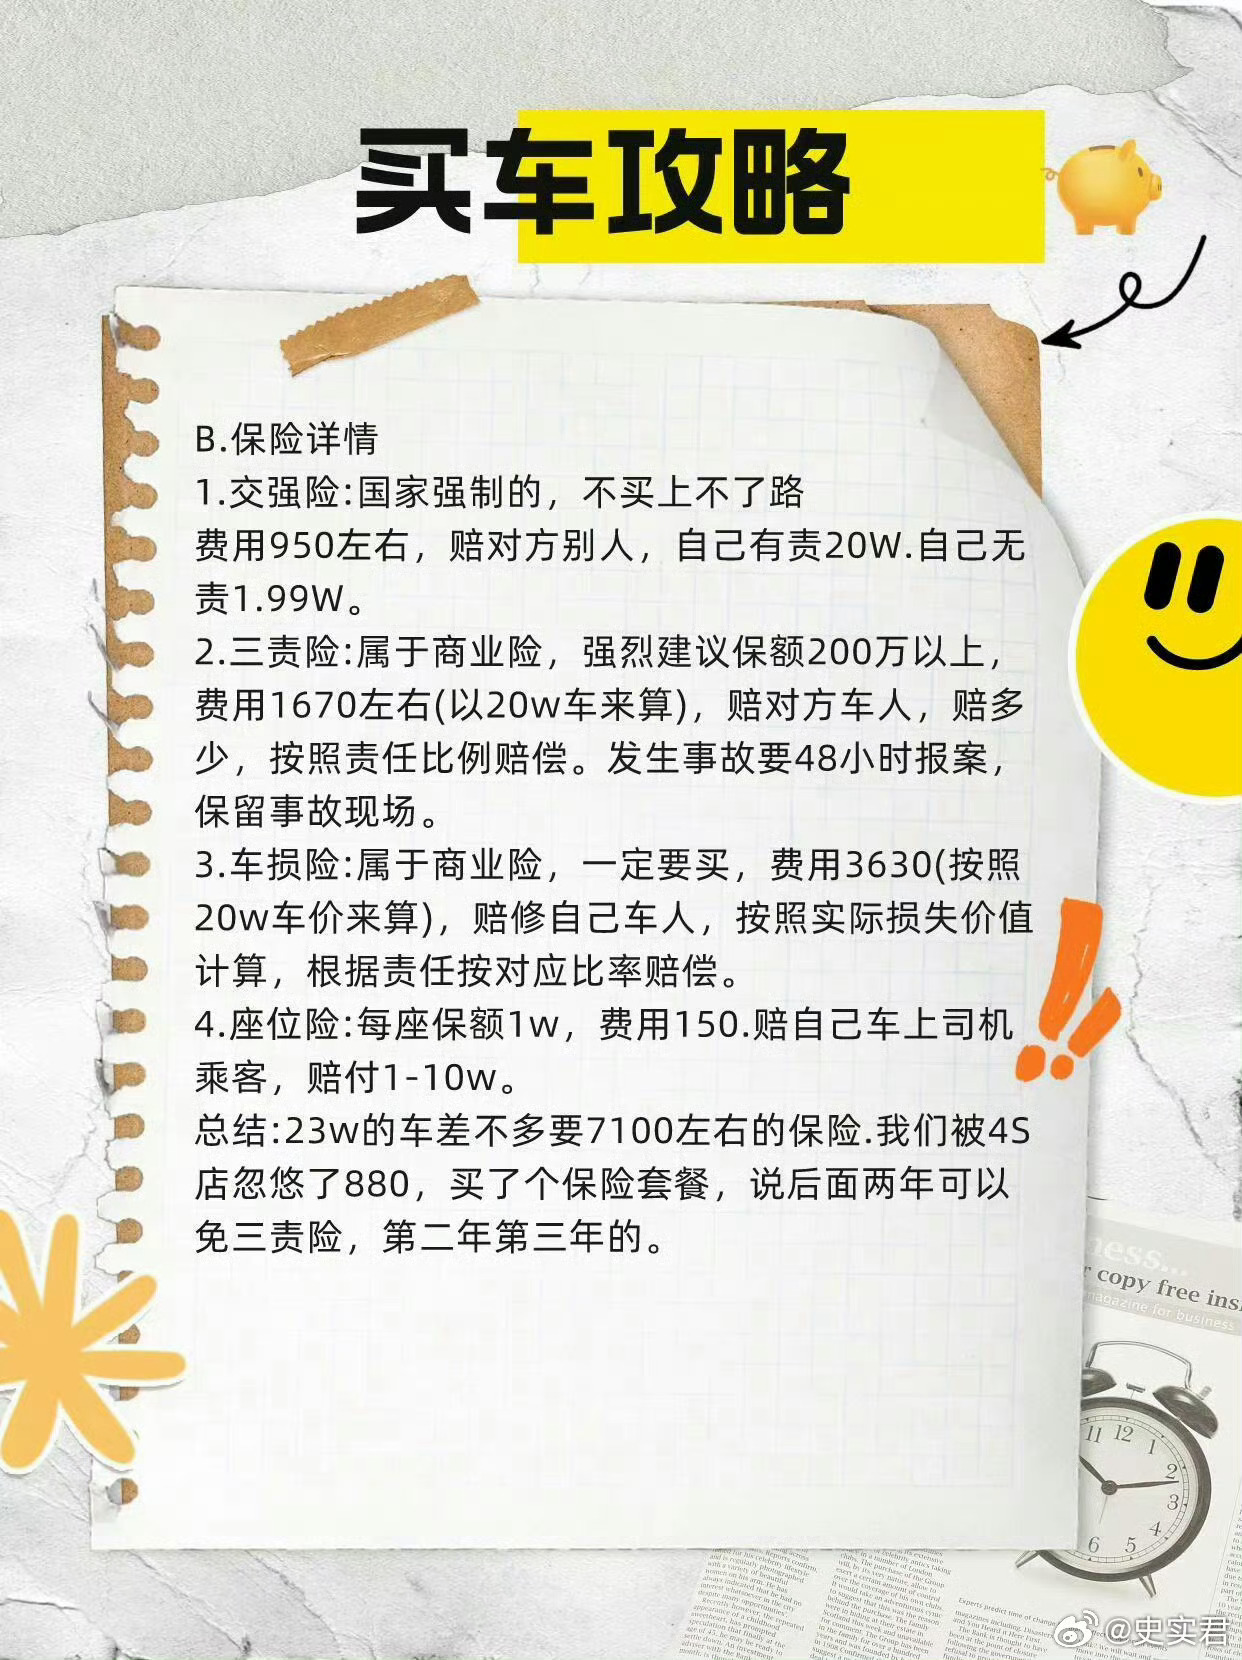 买车攻略
B.保险详情
1.交强险:国家强制的，不买上不了路
费用950左右，赔对方别人，自己有责20W.自己无
责1.99W。
2.三责险:属于商业险，强烈建议保额200万以上，
费用1670左右(以20w车来算)，赔对方车人，赔多
少，按照责任比例赔偿。发生事故要48小时报案，
保留事故现场。
3.车损险:属于商业险，一定要买，费用3630(按照
20w车价来算)，赔修自己车人，按照实际损失价值
计算，根据责任按对应比率赔偿。
4.座位险:每座保额1w，费用150.赔自己车上司机
乘客，赔付1-10w。
总结:23w的车差不多要7100左右的保险.我们被4S
店忽悠了880，买了个保险套餐，说后面两年可以
免三责险，第二年第三年的。
ness...
r copy free insi
magazine for business
11 12 1
2
3
4
5
6
Experts predict time of
@史实君